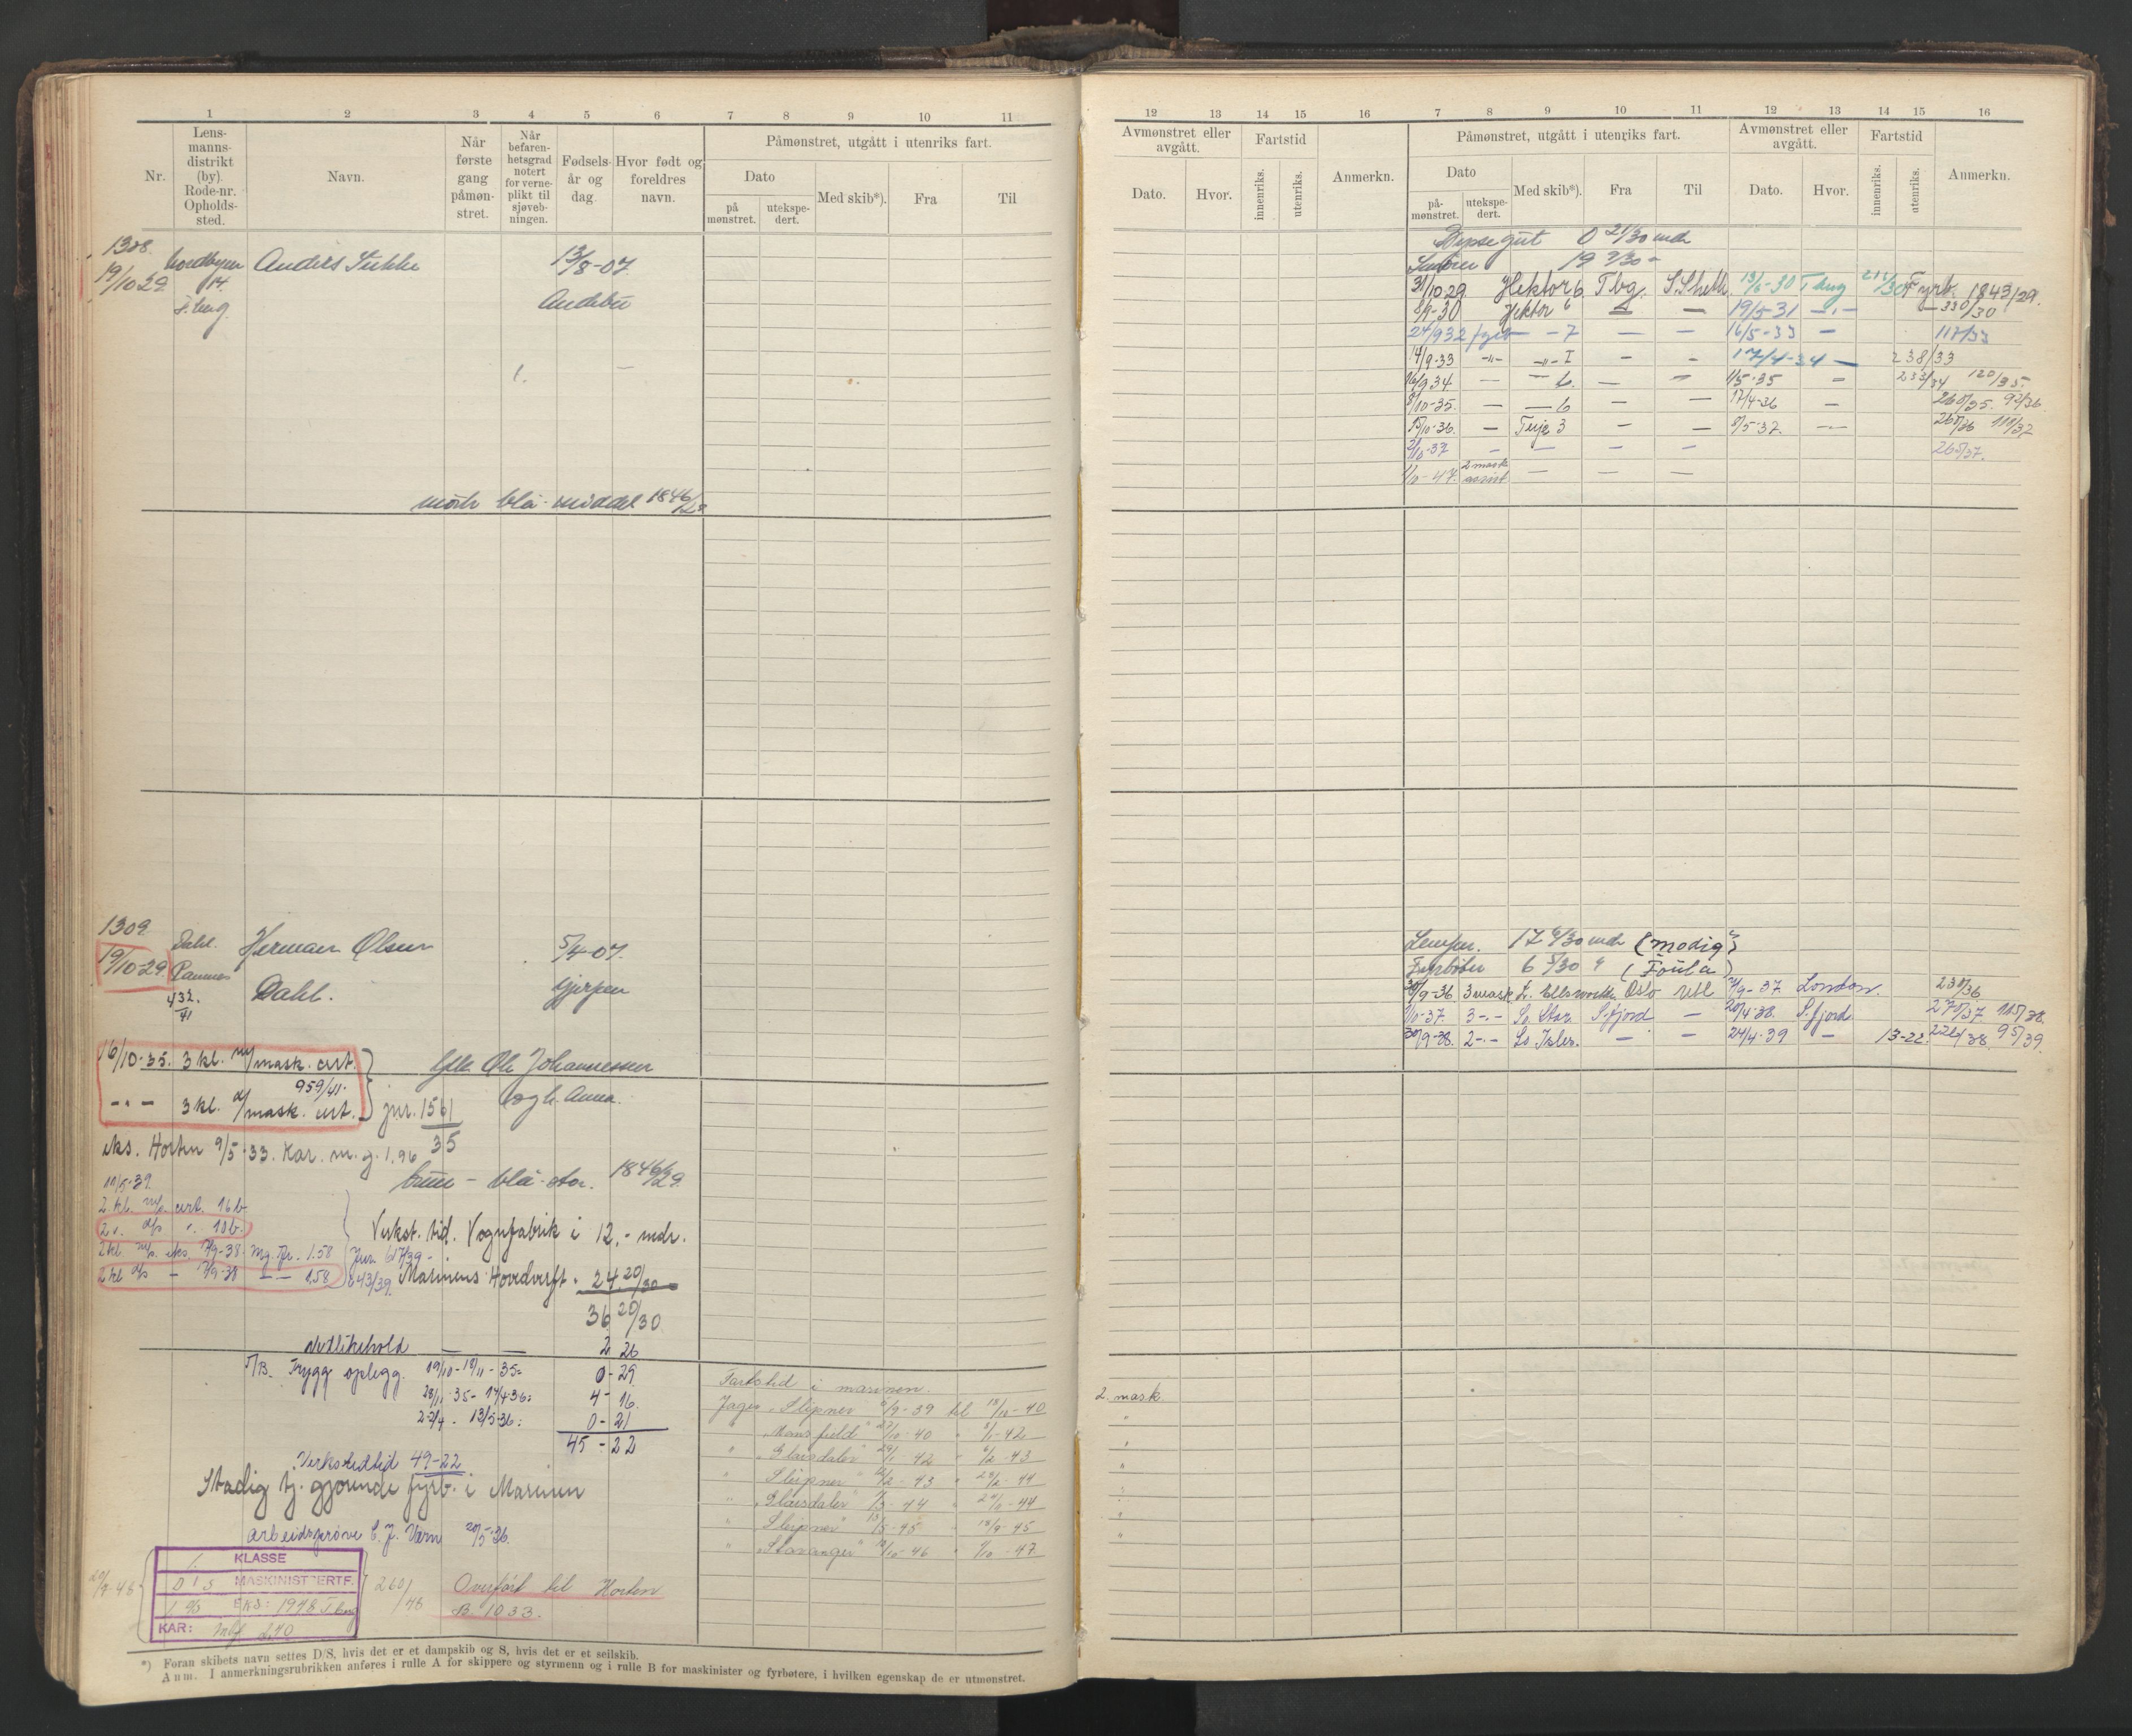 1 2 3 4 5 6 7 8 9 10 11
Nr.
Lens-
manns-
distrikt
(by).
Rode-nr.
Opholds-
sted.
Navn.
Når
første
gang
påmøn-
stret.
Når
befaren-
hetsgrad
notert
for verne-
plikt til
sjøveb-
ningen.
Fødsels-
år og
dag.
Hvor født og
foreldres
navn.
Påmønstret, utgått i utenriks fart.
Dato
på
mønstret.
utekspe-
dert.
Med skib*).
Fra
Til
1308
19/10 29
Nordbyen
14
Anders
13/8-07
Andebu
mörk blå middel 1846/29
1309
19/10-29
Dahl.
432.
41
Herman Olsen
Dahl.
5/4-07.
Gjerpen
16/10-35. 3 kl. m/mask. cert.
959/41.
-"- 3 kl. d/mask. cert.
jnr. 1561
35
Ole Johannessen
Anna.
eks. Horten 9/5-33. Kar. m. g. 1.96
brun - blå - stor. 1846/29.
2 kl. m/s cert. 16 b.
2 kl. m/s. eks 7/9-38. Mg. 1.58
2 kl d/s - 7/9-38 - - 1.58
Jnr. 617/39-
643/39.
Verkst. tid. Vognfabrik i 12.- mdr.
Marinens Hovedverft. 24 20/30
36 20/30
Vedlikehold 2 26
T/B. Trygg oplegg. 19/10-18/11-35= 0-29
28/11-35- 14/4-36= 4-16.
22/4 - 13/5-36: 0-21
45-22
Verkstedtid 49-22
Stadig tj. gjørende fyrb. i Marinen
Arbeidsprøve C. J. Værn 20/5-36.
20/9-48
1. KLASSE
D/S MASKINISTCERTF.
EKS: 1948 T.berg
KAR:
260/48
Overført til Horten
B 1033.
Fartstid i marinen.
Jager "Sleipner" 9/9-39 til 18/10-40
" "Mansfield" 27/10-40 " 8/1-42
" "Glaisdale" 29/1-42 " 6/2-43
" Sleipner 12/2-43 " 28/2-44
" "Glaisdale" 1/3-44 " 24/8-44
" "Sleipner" 13/5-45 " 18/9-45
" "Stavanger" 13/10-46 " 1/10-47
*) Foran skibets navn settes D/S, hvis det er et dampskib og S, hvis det er et seilskib.
Anm. I anmerkningsrubrikken anføres i rulle A for skippere og styrmenn og i rulle B for maskinister og fyrbøtere, i hvilken egenskap de er utmønstret.
12 13 14 15 16 7 8 9 10 11 12 13 14 15 16
Avmønstret eller
avgått.
Dato.
Hvor.
Fartstid
innenriks.
utenriks.
Anmerkn.
Påmønstret, utgått i utenriks fart.
Dato
på-
mønstret.
utekspe-
dert.
Med skib*).
Fra
Til
Avmønstret eller
avgått.
Dato.
Hvor.
Fartstid
innenriks.
utenriks.
Anmerkn.
Dæksgut 0 21/30 mdr
19 2/30 -
31/10 29 Hektor 6 Tbg. S. Shetl. 13/6-30 Tbrg Fyrb. 1843/29.
8/9-30 Hektor 6 — — 19/5-31 -"- 330/30
24/9 32 fyrb — 7 — — 16/5-33 — 117/33
14/9-33 -"- -"- I — — 17/4-34 — 238/33
16/9 34 — — 6. — — 1/5-35 — 233/34 120/35.
8/10-35. — — 6 — — 17/4-36 — 260/35. 92/36
15/10-36. — Terje 3 — — 8/5-37. — 268/36 111/37
2/10-37 — — — — 265/37.
1/10-47. 2 mask assist — — —
Lemper. 17 6/30 mdr (Modig)
Fyrbøter 6 5/30 " (Foula)
30/9-36 3 mask L. Ellsworth Oslo Utl /9-37 London. 230/36
1/10-37. 3-"- So. Star. S.fjord — 20/4-38. S.fjord 270/37 115/38.
30/9-38. 2-"- So Isles. — — 24/4-39 — 13-22. 226/38. 95/39.
2. mask.
"
"
"
"
"
"